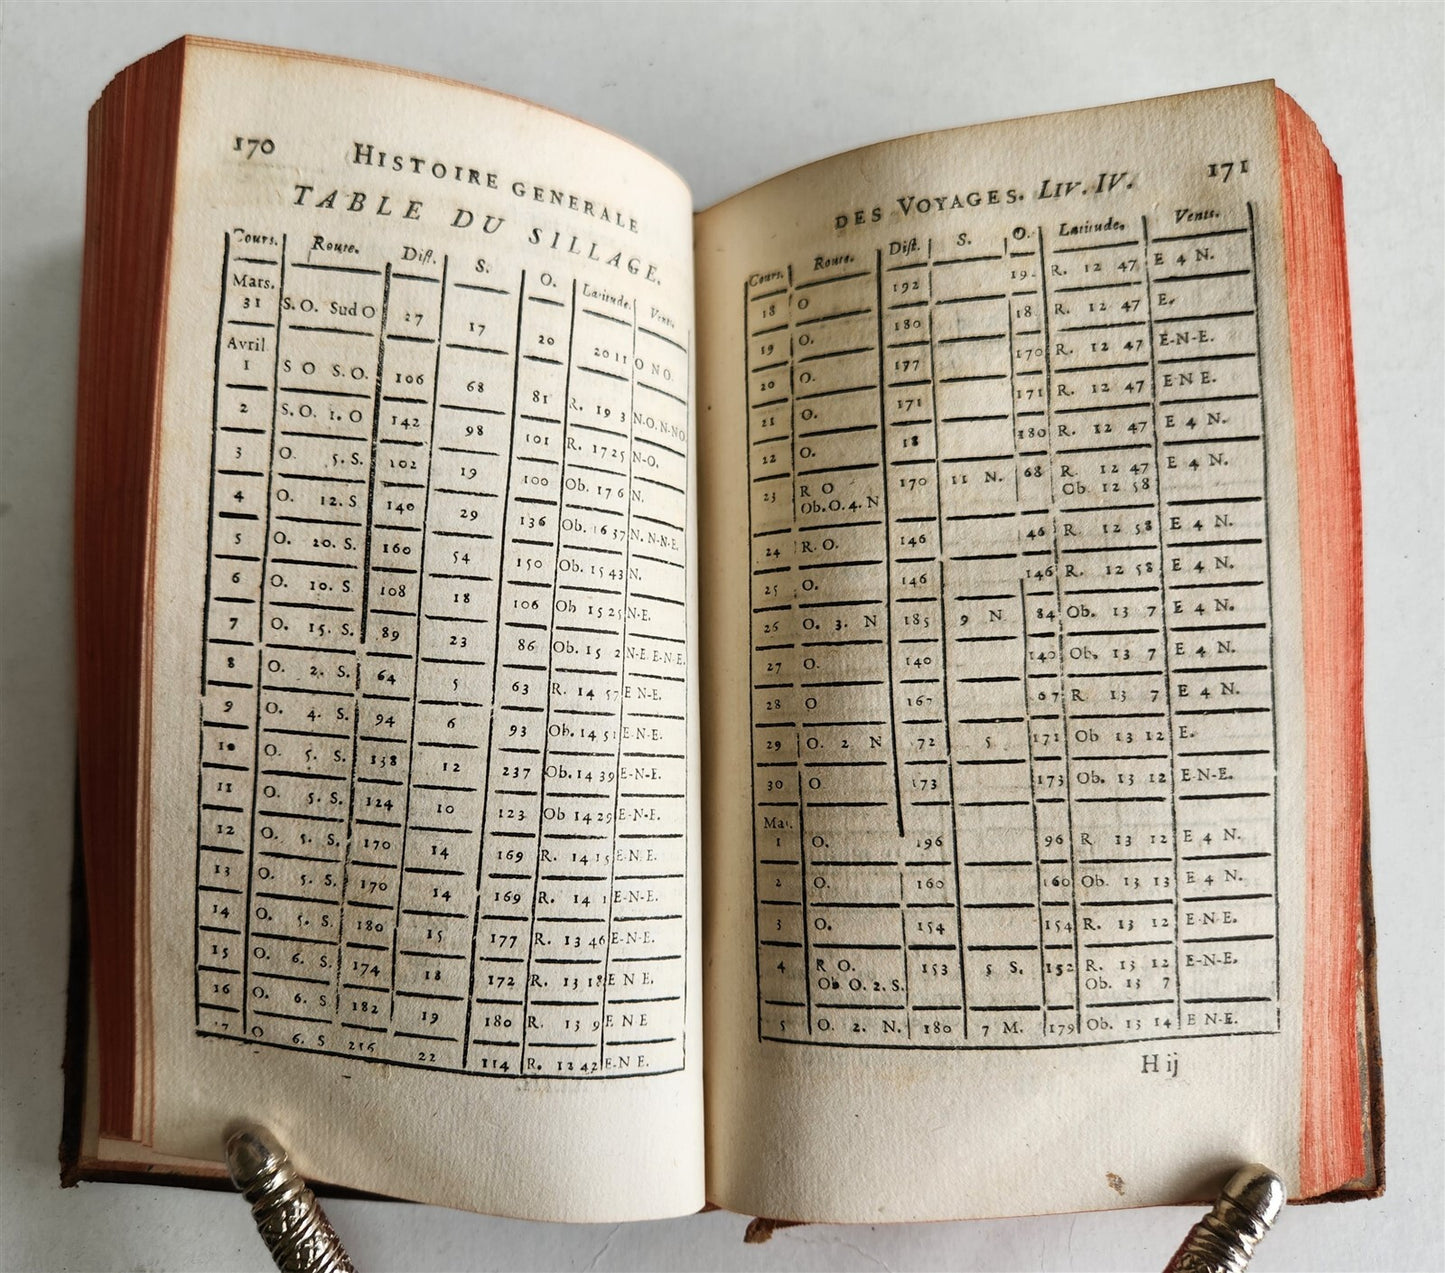 170 HISTOIRE GENERALE
TABLE DU SILLAGE.
Cours. Route. Dist. S. O. Latitude. Vents.
Mars.
31 S.O. Sud O 27 17 20 20 11 O NO.
Avril
1 S O S.O. 106 68 81 R. 19 3 N.O. N-NO
2 S.O. 1. O 142 98 101 R. 17 25 N-O.
3 O. 5. S. 102 19 100 Ob. 17 6 N.
4 O. 12. S 140 29 136 Ob. 16 37 N. N-N-E.
5 O. 20. S. 160 54 150 Ob. 15 43 N.
6 O. 10. S 108 18 106 Ob 15 25 N-E.
7 O. 15. S. 89 23 86 Ob. 15 2 N-E. E-N-E.
8 O. 2. S. 64 5 63 R. 14 57 E N-E.
9 O. 4. S. 94 6 93 Ob. 14 51 E-N-E.
10 O. 5. S. 138 12 237 Ob. 14 39 E-N-E.
11 O. 5. S. 124 10 123 Ob 14 29 E-N-E.
12 O. 5. S. 170 14 169 R. 14 15 E-N E.
13 O. 5. S. 170 14 169 R. 14 1 E-N-E.
14 O. 5. S. 180 15 177 R. 13 46 E-N-E.
15 O. 6. S. 174 18 172 R. 13 18 E N E.
16 O. 6. S 182 19 180 R. 13 9 E N E
7 O 6. S 216 22 114 R. 12 42 E-N E.
DES VOYAGES. LIV. IV. 171
Cours. Route. Dist. S. O. Latitude. Vents.
18 O 192 19. R. 12 47 E 4 N.
19 O. 180 18 R. 12 47 E.
20 O. 177 170 R. 12 47 E-N-E.
21 O. 171 171 R. 12 47 E N E.
22 O. 18 180 R. 12 47 E 4 N.
23 R O 170 11 N. 68 R. 12 47 E 4 N.
Ob. O. 4. N Ob. 12 58
24 R. O. 146 46 R. 12 58 E 4 N.
25 O. 146 146 R. 12 58 E 4 N.
26 O. 3. N 185 9 N 84 Ob. 13 7 E 4 N.
27 O. 140 140 Ob. 13 7 E 4 N.
28 O 167 67 R 13 7 E 4 N.
29 O. 2 N 72 5 171 Ob 13 12 E.
30 O 173 173 Ob. 13 12 E-N-E.
Mai.
1 O. 196 96 R 13 12 E 4 N.
2 O. 160 160 Ob. 13 13 E 4 N.
3 O. 154 154 R. 13 12 E-N-E.
4 R O. 153 5 S. 152 R. 13 12 E-N-E.
Ob O. 2. S. Ob. 13 7
5 O. 2. N. 180 7 M. 179 Ob. 13 14 E N-E.
H ij